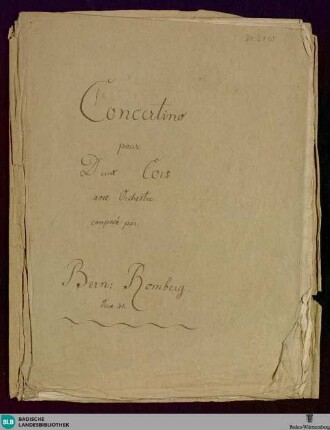 Concertino
pour
Deux Cors
avec Orchestre
composé par
Bern: Romberg
BLB BADISCHE
LANDESBIBLIOTHEK
Baden-Württemberg